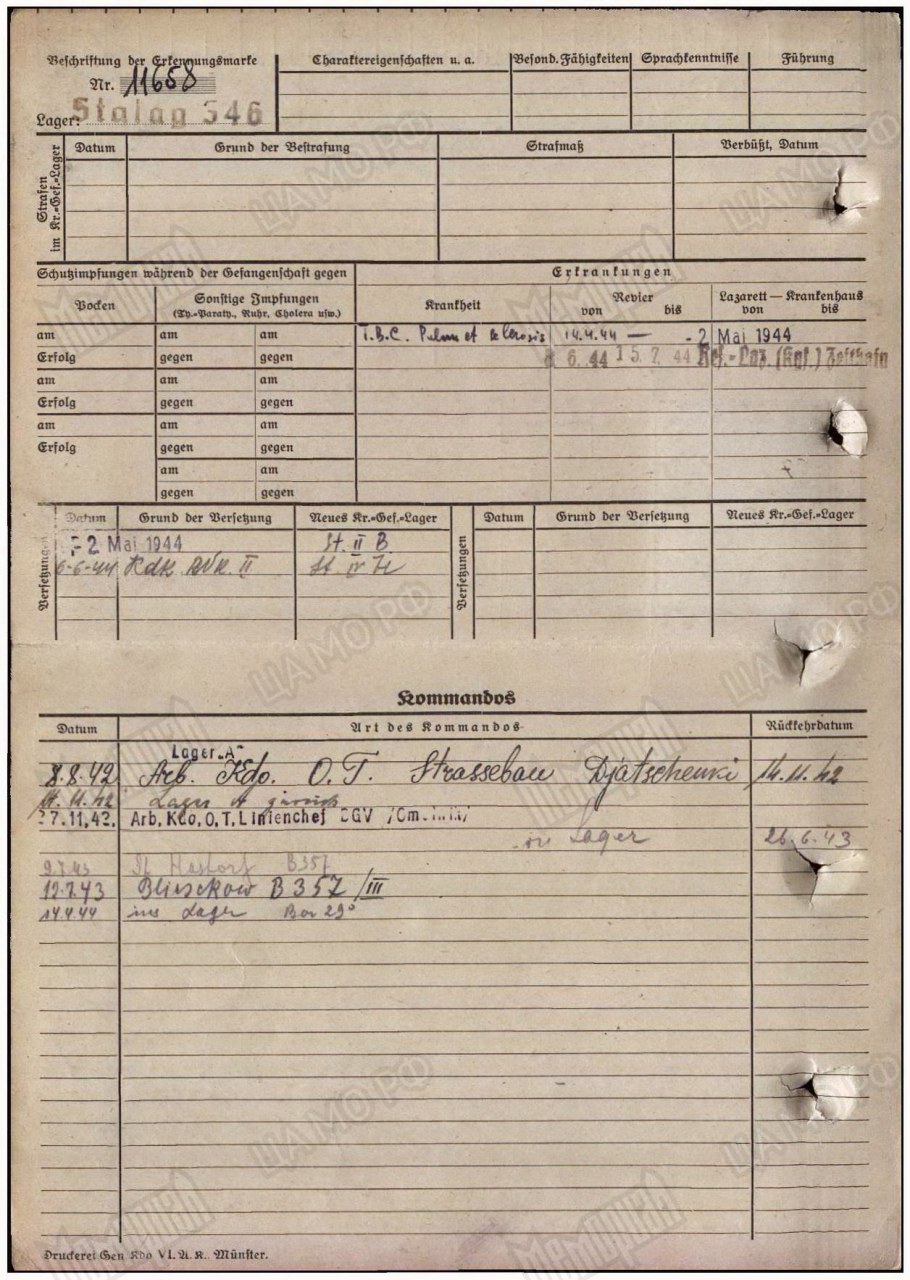 Beschriftung der Erkennungsmarke
Nr. 11658
Lager: Stalag 346
Charaktereigenschaften u. a.
Besond. Fähigkeiten
Sprachkenntnisse
Führung
Strafen im Kr.-Gef.-Lager
Datum
Grund der Bestrafung
Strafmaß
Verbüßt, Datum
Schutzimpfungen während der Gefangenschaft gegen
Erkrankungen
Pocken
Sonstige Impfungen
(Ty.-Paraty., Ruhr, Cholera usw.)
Krankheit
Revier
von bis
Lazarett — Krankenhaus
von bis
am am am T.B.C. Pulm et 14.4.44 — - 2 Mai 1944
Erfolg gegen gegen 6. 44 15. 7. 44 (Kgf.) Zeithain
am am am
Erfolg gegen gegen
am am am
Erfolg gegen gegen
am am
gegen gegen
Versetzungen
Datum Grund der Versetzung Neues Kr.-Gef.-Lager
- 2 Mai 1944 St. II B
6-6-44 II St IV
Versetzungen
Datum Grund der Versetzung Neues Kr.-Gef.-Lager
Kommandos
Datum Art des Kommandos Rückkehrdatum
Lager „A"
8.8.42 Arb. Kdo. O.T. Strassebau Djatschenki 14.11.42
14.11.42 Lager A zurück
27.11.42. Arb, Kdo, O, T, Linienchef
Lager 26.6.43
9.7.43 St. B357
12.7.43 B 357/III
14.4.44 ins Lager
Druckerei Gen Kdo VI. A. K., Münster.
ЦАМО РФ